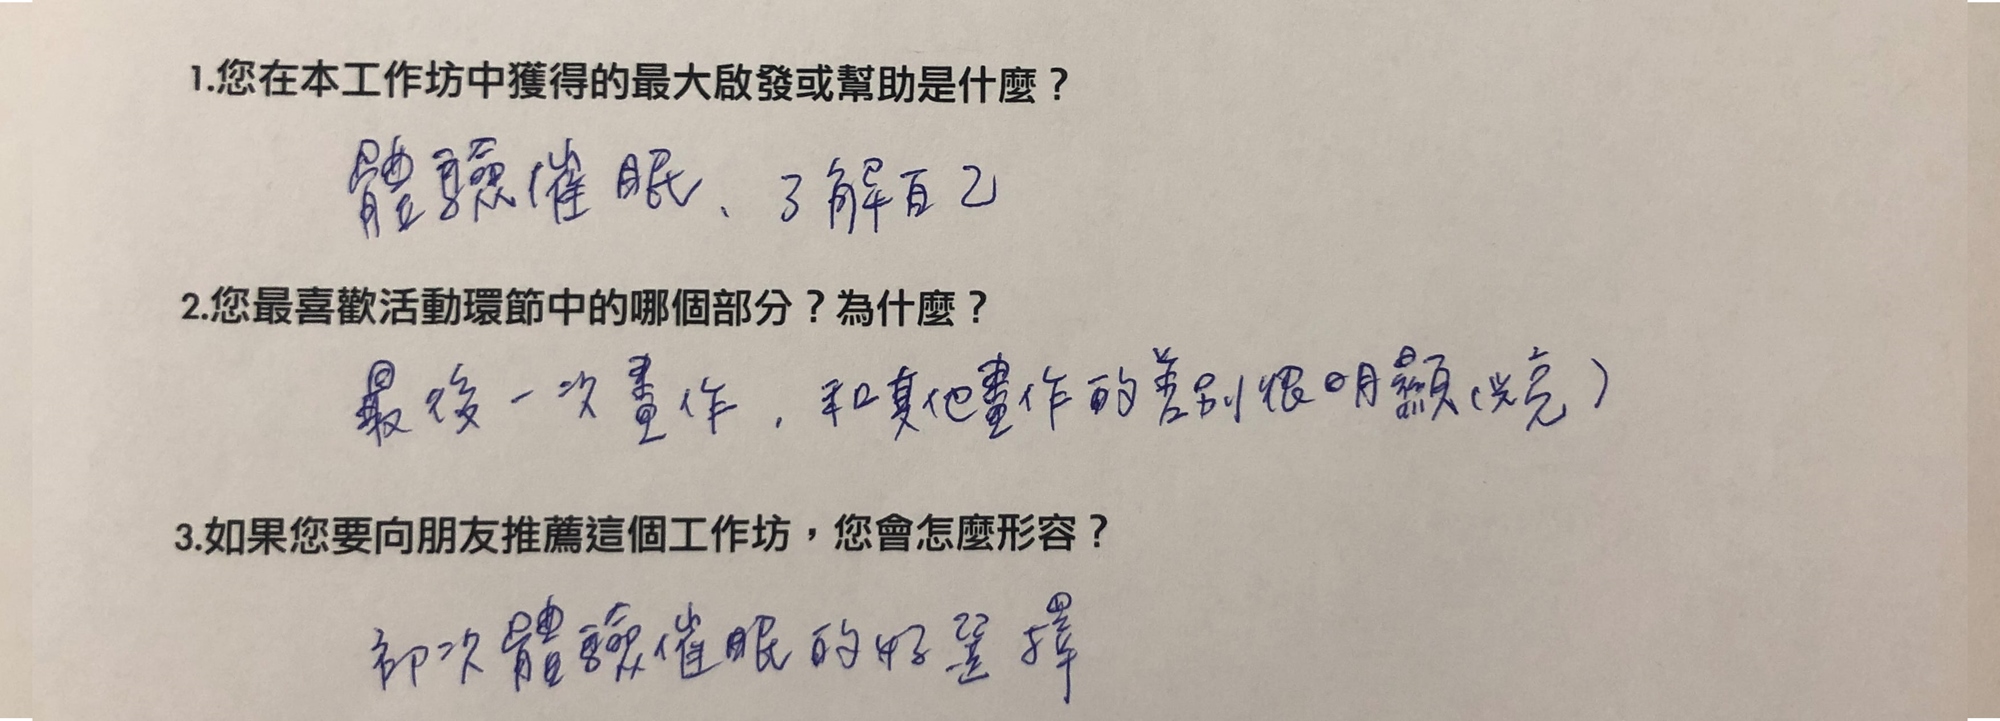 1.您在本工作坊中獲得的最大啟發或幫助是什麼？
體驗催眠、了解自己
2.您最喜歡活動環節中的哪個部分？為什麼？
最後一次畫作，和其他畫作的差別很明顯(漂亮)
3.如果您要向朋友推薦這個工作坊，您會怎麼形容？
初次體驗催眠的好選擇